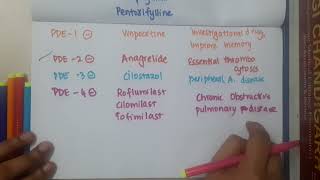 Pentoxifylline
PDE-1 ⊖ Vinpocetine Investigational drug,
Improve memory
PDE-2 ⊖ Anagrelide Essential thrombo
cytosis
PDE-3 ⊖ Cilostazol peripheral A. disease
PDE-4 ⊖ Roflumilast Chronic Obstructive
Cilomilast pulmonary disease
Tofimilast